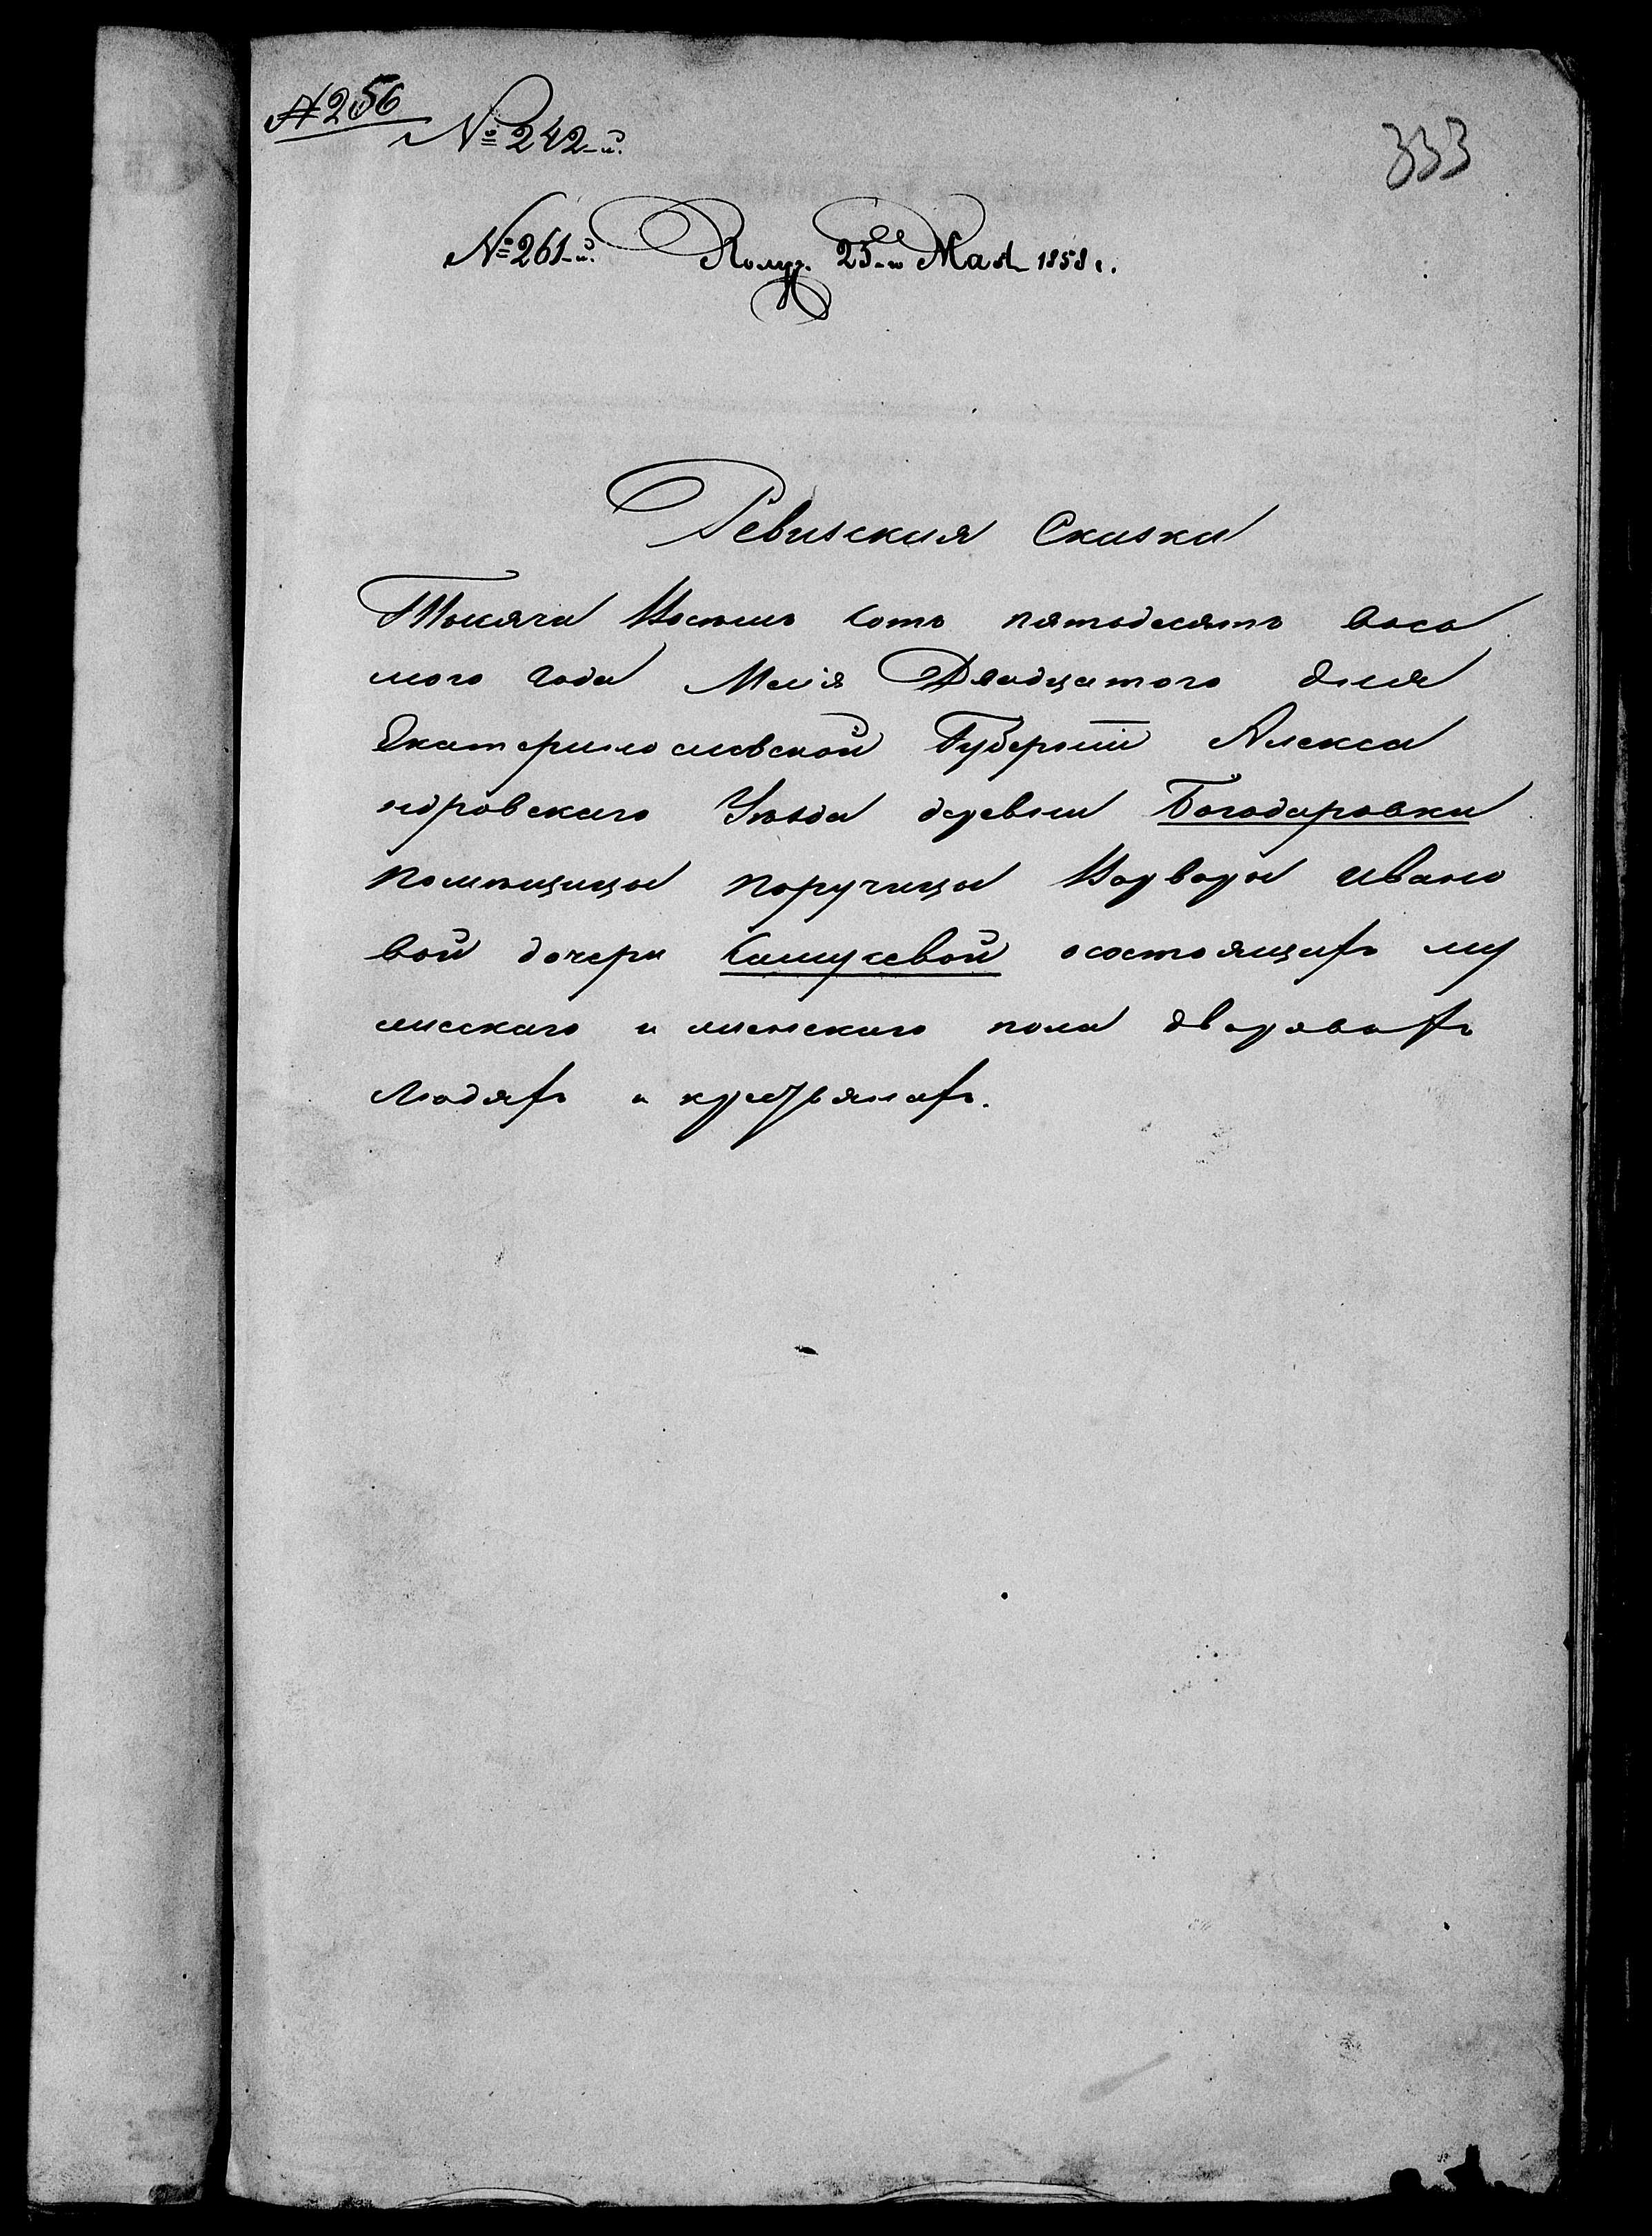 № 256
№ 242-й.
333
№ 261-й. Получ. 25-го Мая 1858 г.
Ревизския Сказки
Тысяча Восемь сотъ пятьдесятъ вось
мого года Маія Двадцатого дня
Екатеринославской Губерніи Алекса
ндровскаго Уѣзда деревни Богодаровки
помѣщицы поручицы Варвары Ивано
вой дочери осостоящихъ му
жескаго и женскаго пола дворовыхъ
людяхъ и крестьянахъ.